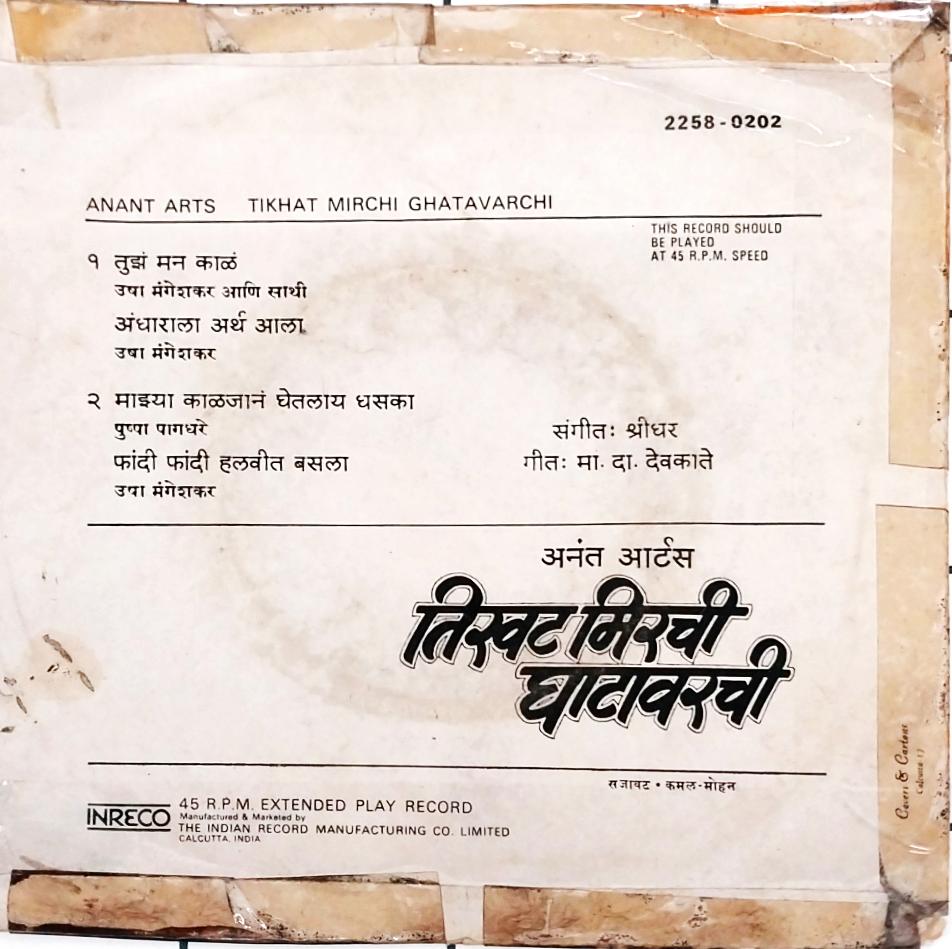 2258-0202
ANANT ARTS TIKHAT MIRCHI GHATAVARCHI
THIS RECORD SHOULD
BE PLAYED
AT 45 R.P.M. SPEED
१ तुझं मन काळं
उषा मंगेशकर आणि साथी
अंधाराला अर्थ आला
उषा मंगेशकर
२ माझ्या काळजानं घेतलाय धसका
पुष्पा पागधरे
फांदी फांदी हलवीत बसला
उषा मंगेशकर
संगीतः श्रीधर
गीतः मा. दा. देवकाते
अनंत आर्टस
तिखट मिरची
घाटावरची
सजावट • कमल-मोहन
INRECO
45 R.P.M. EXTENDED PLAY RECORD
Manufactured & Marketed by
THE INDIAN RECORD MANUFACTURING CO. LIMITED
CALCUTTA, INDIA
Covers & Cartons
Calcutta 17